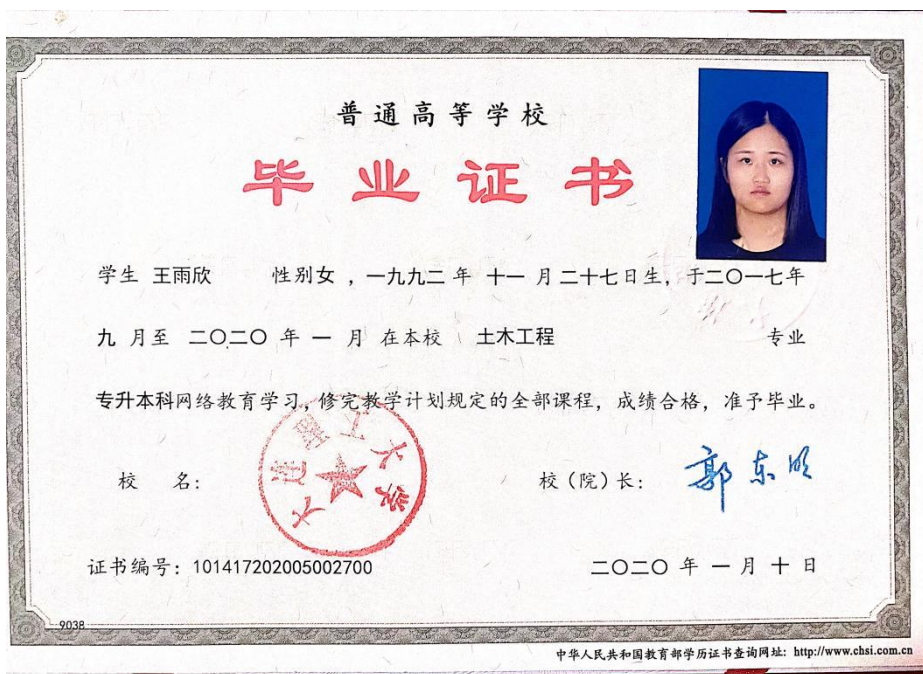 普通高等学校
毕业证书
学生 王雨欣 性别女 ，一九九二 年 十一 月 二十七日生，于二〇一七年
九 月至 二〇二〇 年 一 月 在本校 土木工程 专业
专升本科网络教育学习，修完教学计划规定的全部课程，成绩合格，准予毕业。
大连理工大学
校 名： 校（院）长： 郭东明
证书编号：101417202005002700 二〇二〇 年 一 月 十 日
9038
中华人民共和国教育部学历证书查询网址：http://www.chsi.com.cn